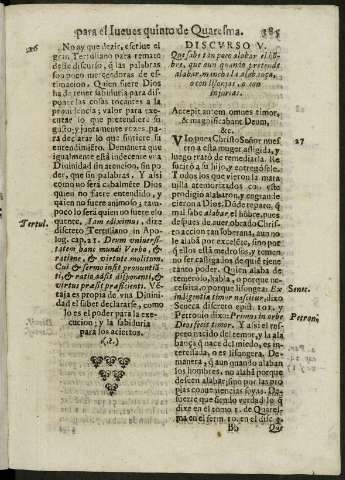 para el Iueues quinto de Quaresma. 385
26
No ay que dezir, escriue el
gran Tertuliano para remate
deste discurso, q̃ las palabras
son poco merecedoras de es-
timacion. Quien fuere Dios
ha de tener sabiduria para dis-
poner las cosas tocantes a la
prouidencia; valor para exe-
cutar lo que pretendiere su
gusto; y juntamente razones pa-
ra declarar lo que fuere su
entendimiẽto. De manera que
igualmente està indecente vna
Diuinidad sin atencion, sin po-
der, que sin palabras. Y assi
como no serà cabalmẽte Dios
quien no fuere entendido, y
quien no fuere animoso; tam-
poco lo serà quien no fuere elo
quente.
Tertul.
Iam ediximus, dize
discreto Tertuliano in Apo-
log. cap. 21. Deum vniuersi-
tatem hanc mundi Verbo, &
ratione, & virtute molitum.
Cui & sermo insit pronuntiã-
ti, & ratio adsit disponenti, &
virtus præsit perficienti. Vẽ-
taja es propia de vna Diuini-
dad el saber declararse, como
lo es el poder para la exe-
cucion; y la sabiduria
para los aciertos.
(.?.)
DISCVRSO V.
Que sabe tan poco alabar el hõ-
bre, que aun quando pretende
alabar, mancha la alabança,
o con lisonjas, o con
injurias.
Accepit autem omnes timor,
& magnificabant Deum,
&c.
27
VIo pues Christo Señor nues-
tro a esta muger afligida, y
luego tratò de remediarla. Re-
sucitò a su hijo, y entregòsele.
Todos los que vieron la mara
uilla atemorizados con este
prodigio alabaron, y engrande-
cieron a Dios. Dõde reparo, q̃
mal sabe alabar el hõbre, pues
despues de auer obrado Chris-
to accion tan soberana, aun no
le alabã por excelẽte, sino por
q̃ ellos està medrosos, y temen
no ser castigados de quiẽ tiene
tanto poder. Quien alaba de
temeroso, habla, o porque ne-
cessita, o porque lisongea. Ex
Senec.
indignitate timor nascitur, dixo
Seneca discreto epist. 105. y
Petron.
Petronio dixo: Primus in orbe
Deos fecit timor. Y assi el res-
peto nacido del temor, y la ala
bança q̃ nace del miedo, es in-
terès, o es lisongera. De-
manera, q̃ aun quando alaban
los hombres, no alabã porque
desean alabar, sino por las pro
pias conueniencias suyas. De
fuerte que siendo verdad lo q̃
dixe en el tomo 1. de Quares-
ma en el serm. 10. en el disc. 3.
Bb Que